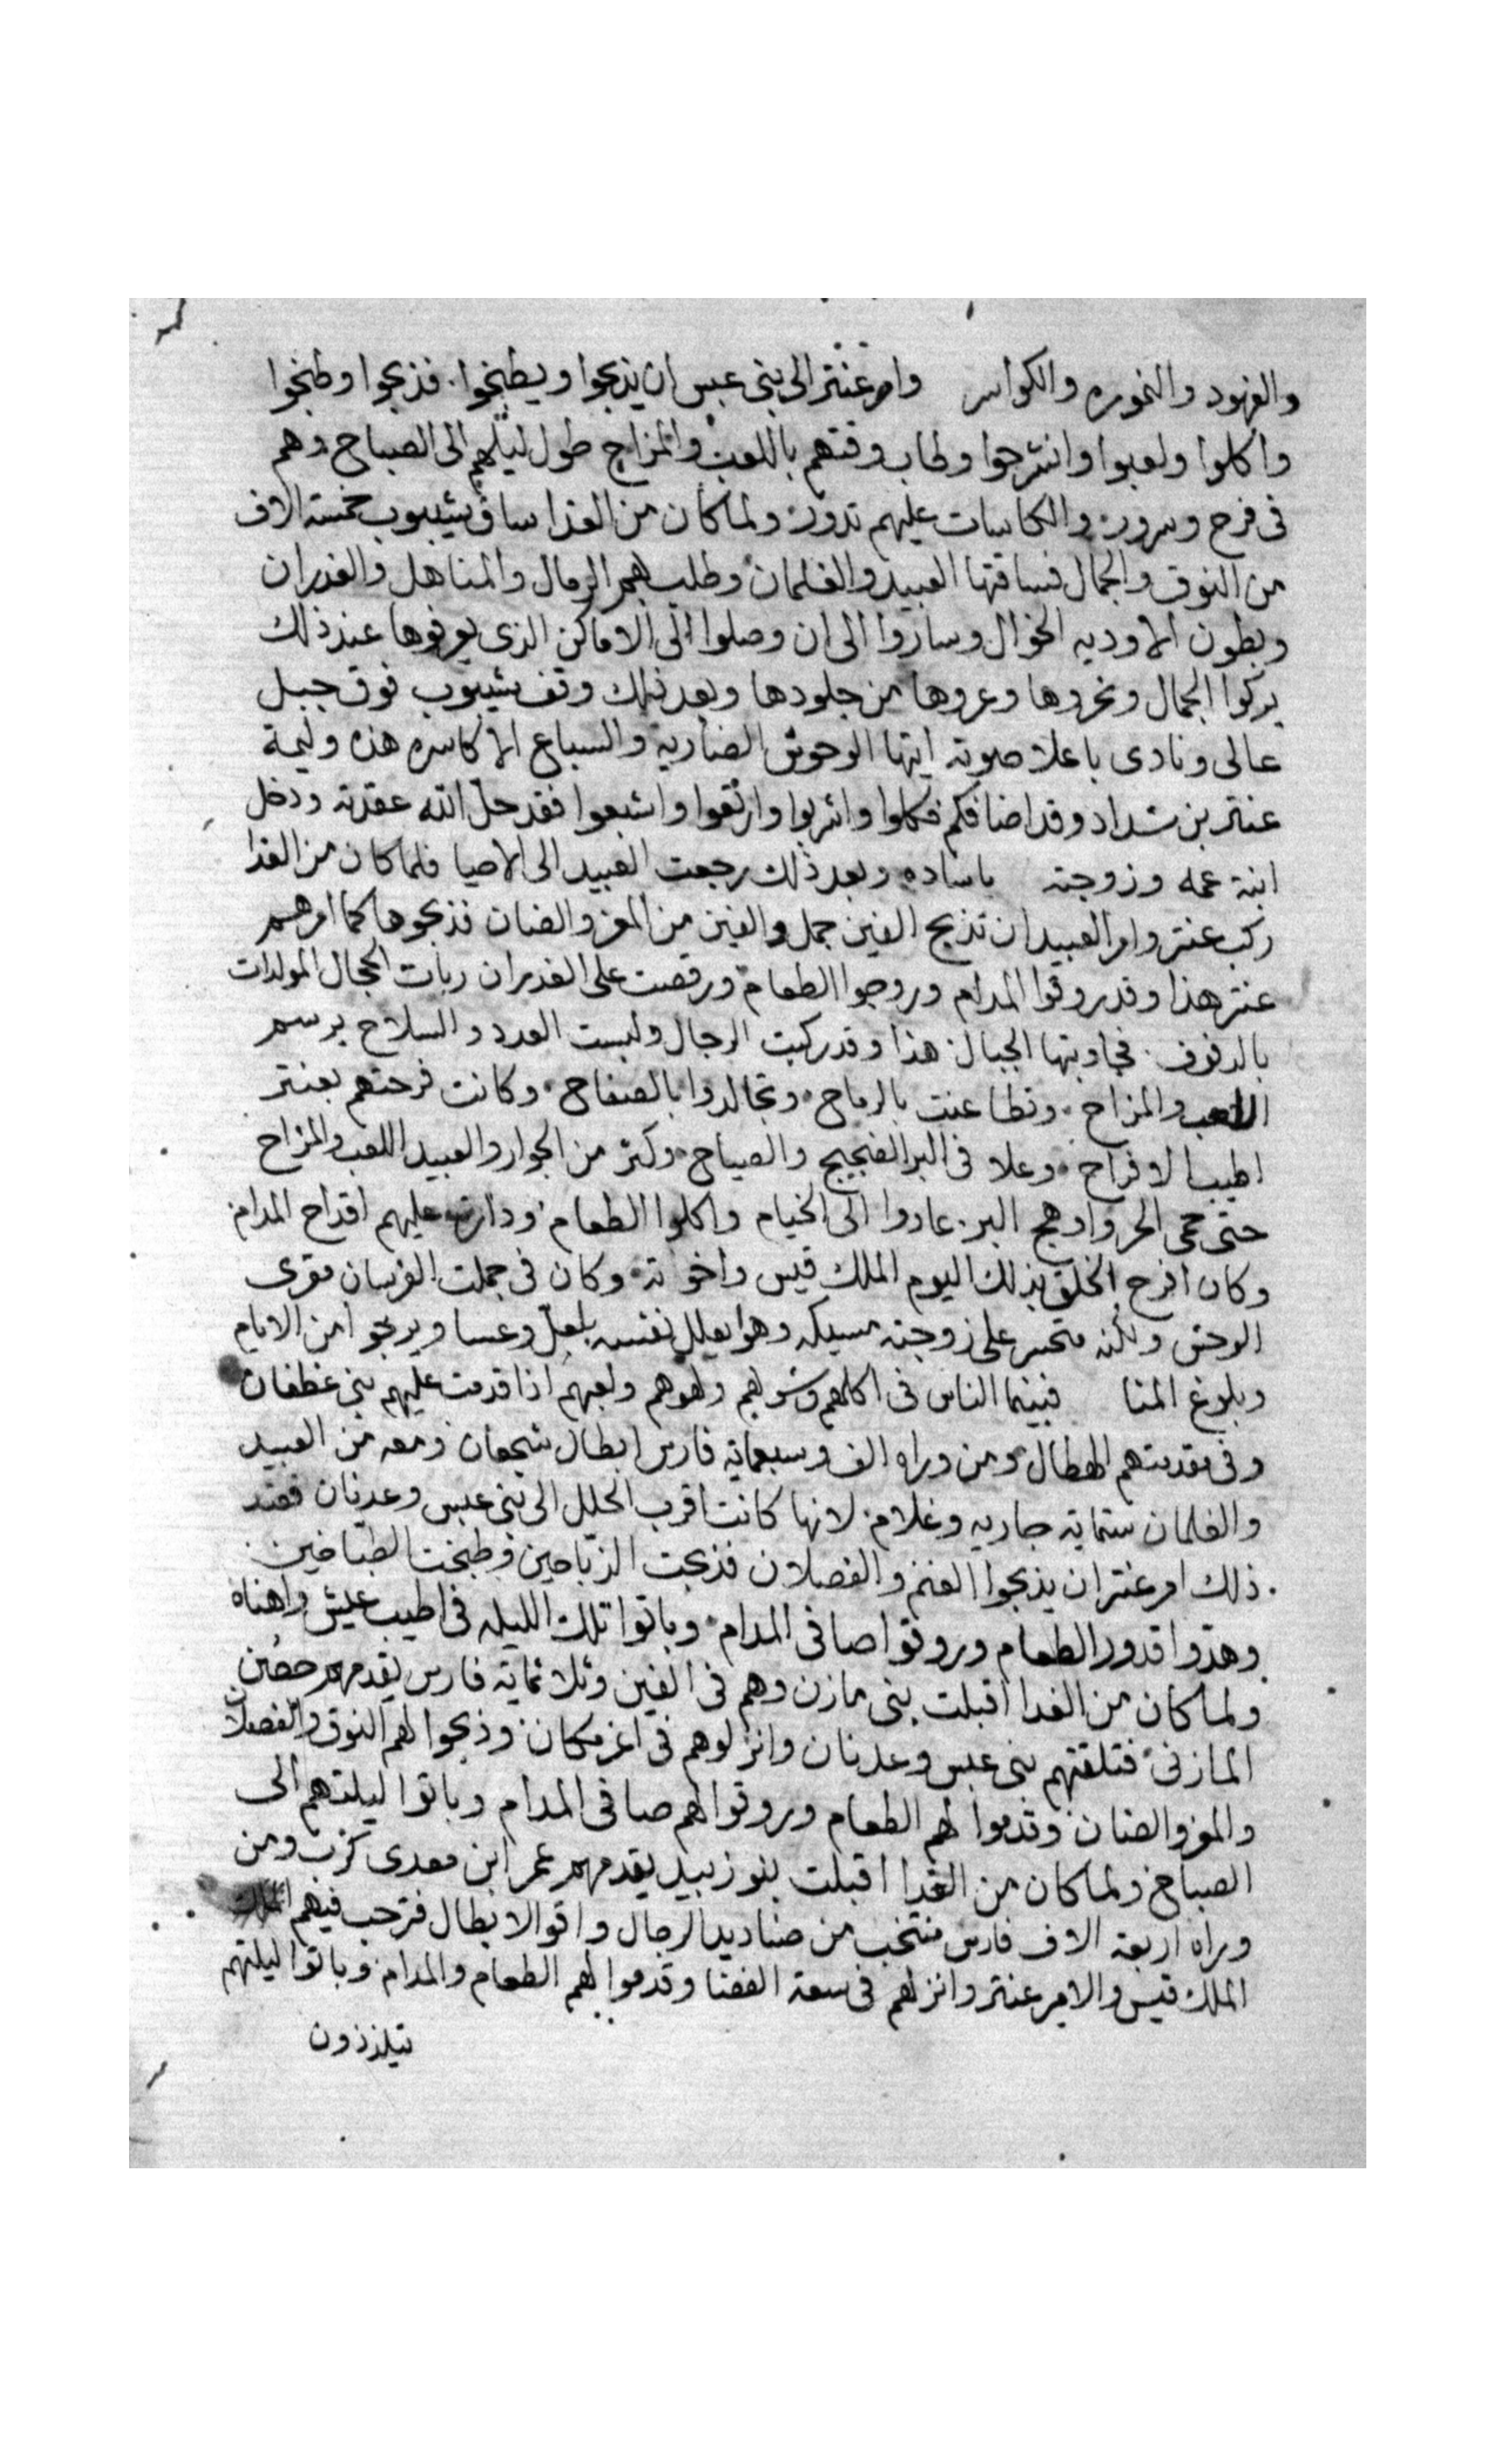 والفهود والنموره والكواسر وامر عنتر الى بني عبس ان يذبحوا ويطبخوا. فذبحوا وطبخوا
واكلوا ولعبوا وانشرحوا وطاب وقتهم باللعب والمزاح طول ليلهم الى الصباح وهم
فى فرح وسرور والكاسات عليهم تدور ولما كان من الغدا ساق شيبوب خمسة الاف
من النوق والجمال فساقتها العبيد والغلمان وطلب بهم الرمال والمناهل والغدران
وبطون الاوديه الخوال وساروا الى ان وصلوا الى الاماكن الذى يعرفوها عند ذلك
بركوا الجمال ونحروها وعروها من جلودها وبعد ذلك وقف شيبوب فوق جبل
عالى ونادى باعلا صوته ايتها الوحوش الضاريه والسباع الاكاسره هذه وليمة
عنتر بن شداد وقد اضافكم فكلوا واشربوا وارتعوا واشبعوا فقد حل الله عقدته ودخل
ابنة عمه وزوجته ياساده وبعد ذلك رجعت العبيد الى الاحيا فلما كان من الغدا
ركب عنتر وامر العبيد ان تذبح الفين جمل والفين من المعز والضان فذبحوها كما امرهم
عنتر هذا وقد روقوا المدام وروجوا الطعام ورقصت على الغدران ربات الحجال المولدات
بالدفوف. فجاوبتها الجبال هذا وقد ركبت الرجال ولبست العدد والسلاح برسم
اللعب والمزاح. وتطاعنت بالرماح. وتجالدوا بالصفاح. وكانت فرحتهم بعنتر
اطيب الافراح. وعلا فى البر الضجيج والصياح. وكثر من الجوار والعبيد اللعب والمزاح
حتى حمى الحر وادهج البر. عادوا الى الخيام واكلوا الطعام ودارت عليهم اقداح المدام
وكان افرح الخلق بذلك اليوم الملك قيس واخوته. وكان فى جملت الفرسان مقرى
الوحش ولكنه متحسر على زوجته مسيكه وهو يعلل نفسه بلعل وعسا ويرجوا من الايام
وبلوغ المنا فبينما الناس فى اكلهم وشربهم ولهوهم ولعبهم اذا قدمت عليهم بنى غطفان
وفى مقدمتهم الهطال ومن وراه الف وسبعماية فارس ابطال شجعان ومعه من العبيد
والغلمان ستماية جاريه وغلام. لانها كانت اقرب الحلل الى بنى عبس وعدنان فعند
ذلك امر عنتر ان يذبحوا الغنم والفصلان فذبحت الذباحين وطبخت الطباخين.
وهدوا قدور الطعام وروقوا صافى المدام. وباتوا تلك الليله فى اطيب عيش واهناه
ولما كان من الغدا اقبلت بنى مازن وهم فى الفين وثلاثماية فارس يقدمهم حصين
المازنى فتلقتهم بنى عبس وعدنان وانزلوهم فى اعز مكان وذبحوا لهم النوق والفصلان
والمعز والضان وقدموا لهم الطعام وروقوا لهم صافى المدام وباتوا ليلتهم الى
الصباح ولما كان من الغدا اقبلت بنو زبيد يقدمهم عمر ابن معدى كرب ومن
وراه اربعة الاف فارس منتخب من صناديد الرجال واقوا الابطال فترحب فيهم
الملك قيس والامير عنتر وانزلهم فى سعة الفضا وقدموا لهم الطعام والمدام وباتوا ليلتهم
يتلذذون